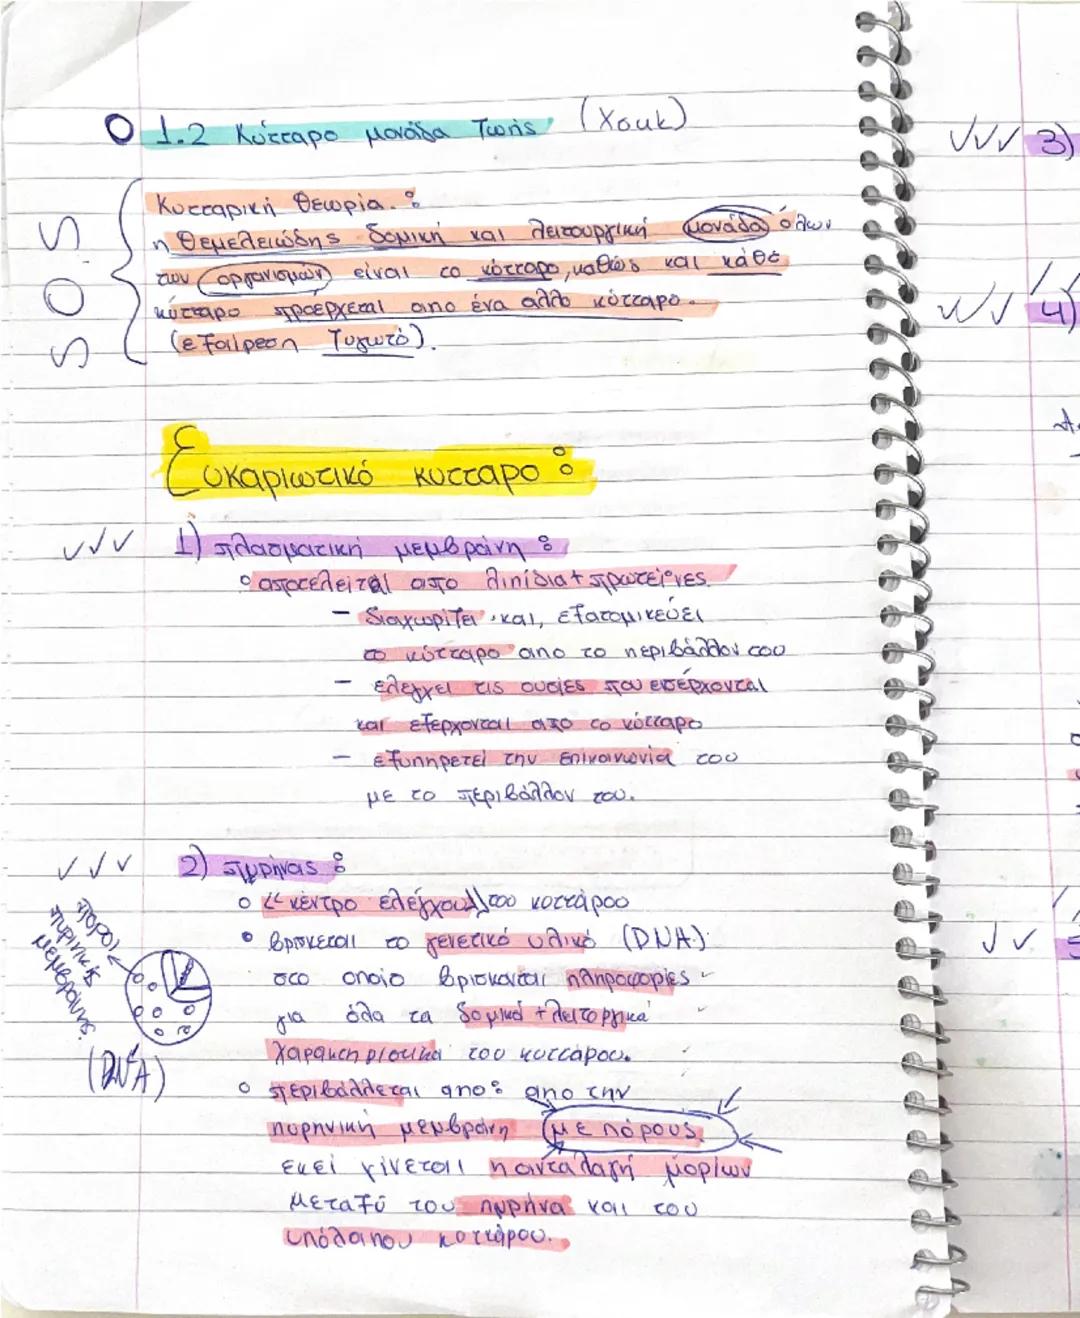 1.2 Κύτταρο μονάδα Ζωής (Χουκ)
Κυτταρική Θεωρία :
SOS
η Θεμελειώδης δομική και λειτουργική μονάδα όλων
των οργανισμών είναι το κύτταρο, καθώς και κάθε
κύτταρο προέρχεται απο ένα αλλο κύτταρο.
(εξαίρεση Ζυγωτό).
Ευκαριωτικό κυτταρο :
1) πλασματική μεμβράνη :
αποτελείται απο λιπίδια + πρωτεΐνες.
- διαχωρίζει και, εξατομικεύει
το κύτταρο απο το περιβάλλον του
- ελέγχει τις ουσίες που εισέρχονται
και εξερχονται απο το κύτταρο
- εξυπηρετεί την επικοινωνία του
με το περιβάλλον του.
2) πυρήνας :
<< κέντρο ελέγχου >> του κυττάρου
βρισκεται το γενετικό υλικό (DNA)
στο οποίο βρισκονται πληροφορίες
για όλα τα δομικά + λειτοργικά
χαρακτηριστικά του κυττάρου.
πόροι
πυρινικής
μεμβράνης.
(DNA)
περιβάλλεται απο : απο την
πυρηνική μεμβράνη (με πόρους)
εκεί γίνεται η ανταλαγή μορίων
μεταξύ του πυρήνα και του
υπόλοιπου κυττάρου.
3)
4)
5